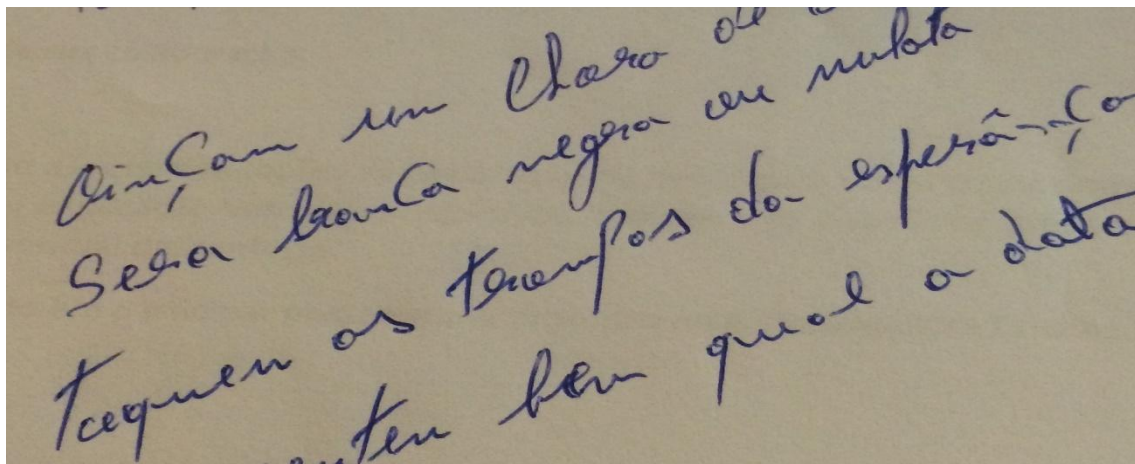 Oinçam um Choro de
Sera branca negra ou mulata
Taquem os trompos da esperânça
bem qual a data